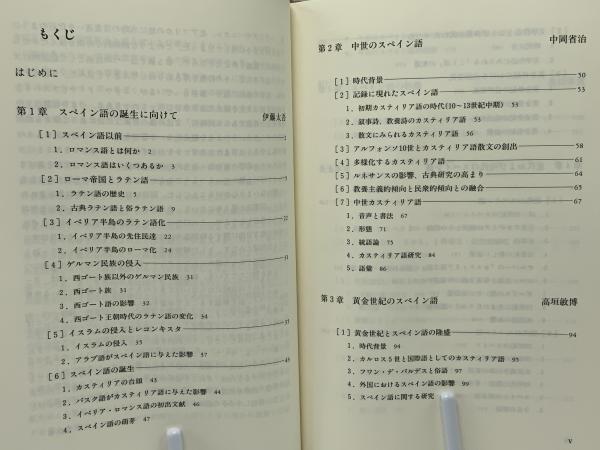 もくじ
はじめに
第1章 スペイン語の誕生に向けて 伊藤太吾
[1]スペイン語以前 1
1．ロマンス語とは何か 2
2．ロマンス語はいくつあるか 3
[2]ローマ帝国とラテン語 5
1．ラテン語の歴史 5
2．古典ラテン語と俗ラテン語 9
[3]イベリア半島のラテン語化 22
1．イベリア半島の先住民達 22
2．イベリア半島のローマ化 24
[4]ゲルマン民族の侵入 31
1．西ゴート族以外のゲルマン民族 31
2．西ゴート族 31
3．西ゴート語の影響 32
4．西ゴート王朝時代のラテン語の変化 34
[5]イスラムの侵入とレコンキスタ 35
1．イスラムの侵入 35
2．アラブ語がスペイン語に与えた影響 38
[6]スペイン語の誕生 43
1．カスティリアの台頭 43
2．バスク語がカスティリア語に与えた影響 44
3．イベリア・ロマンス語の初出文献 46
4．スペイン語の萌芽 47
第2章 中世のスペイン語 中岡省治
[1]時代背景 50
[2]記録に現れたスペイン語 53
1．初期カスティリア語の時代(10〜13世紀中期) 53
2．叙事詩、教養詩のカスティリア語 53
3．散文にみられるカスティリア語 56
[3]アルフォンソ10世とカスティリア語散文の創出 58
[4]多様化するカスティリア語 61
[5]ルネサンスの影響、古典研究の高まり 64
[6]教養主義的傾向と民衆的傾向との融合 65
[7]中世カスティリア語 67
1．音声と書法 67
2．形態 71
3．統語論 75
4．カスティリア語研究 84
5．語彙 86
第3章 黄金世紀のスペイン語 高垣敏博
[1]黄金世紀とスペイン語の隆盛 94
1．時代背景 94
2．カルロス5世と国際語としてのカスティリア語 95
3．フワン・デ・バルデスと俗語 97
4．外国におけるスペイン語の影響 99
5．スペイン語に関する研究
v